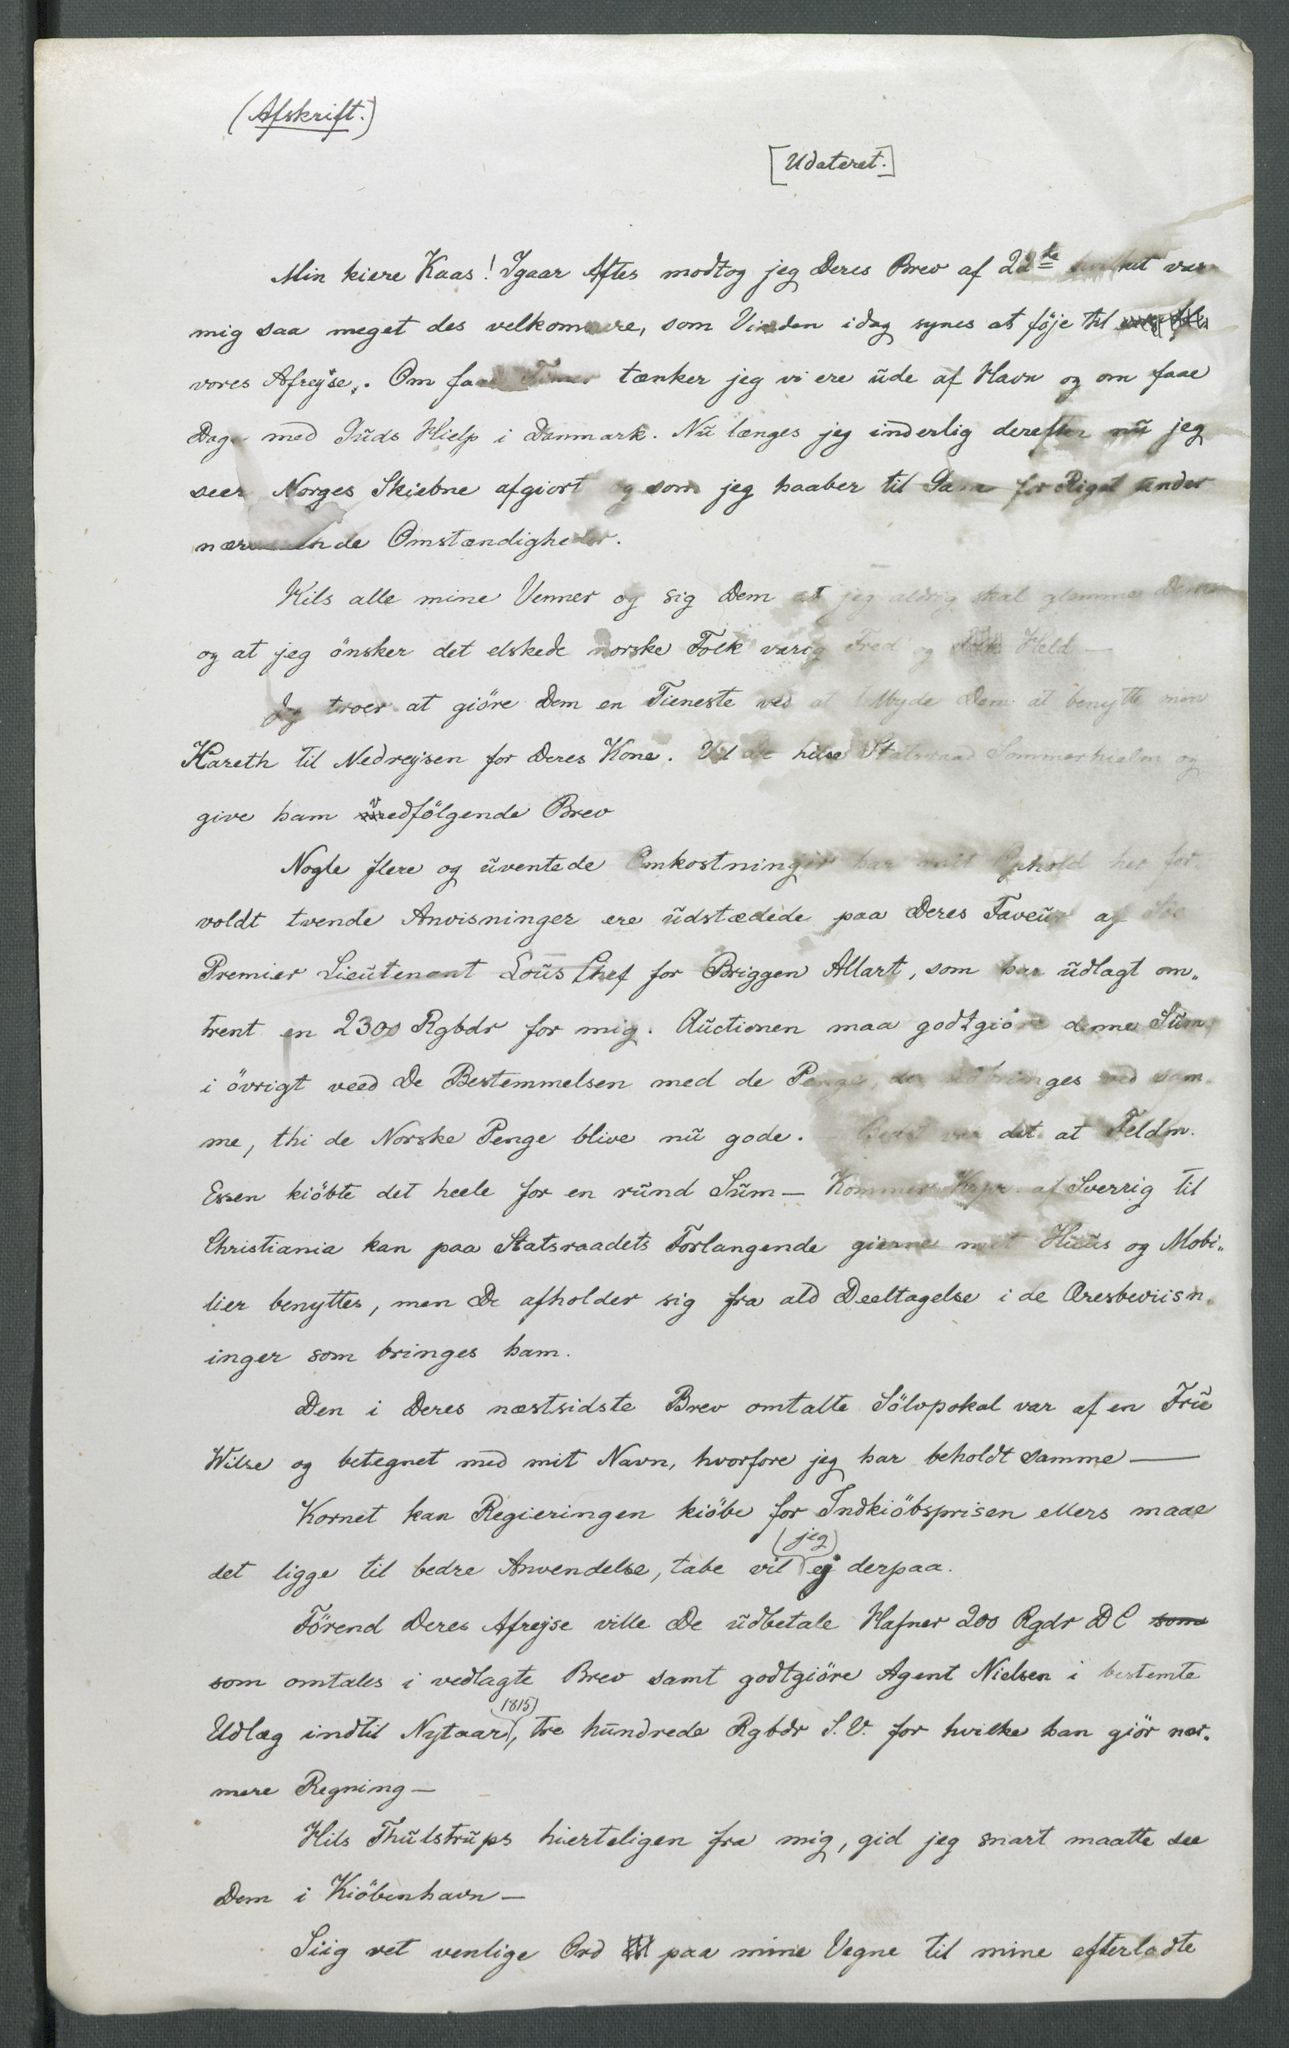 (Afskrift.)
[Udateret.]
Min kiere Kaas! Igaar Aftes modtog jeg Deres Brev af 22de hvilket var
mig saa meget des velkomnere, som Vinden idag synes at föje til
vores Afrejse. Om faae Timer tænker jeg vi ere ude af Havn og om faae
Dage med Guds Hielp i Danmark. Nu længes jeg inderlig derefter nu jeg
seer Norges Skiebne afgiort og som jeg haaber til Gavn for Riget under
nærværende Omstændigheder.
Hils alle mine Venner og sig Dem at jeg aldrig skal glemme Dem
og at jeg önsker det elskede norske Folk varig Fred og Held —
Jeg troer at giöre Dem en Tieneste ved at tilbyde Dem at benytte min
Kareth til Nedrejsen for Deres Kone. Vil De hilse Statsraad Sommerhielm og
give ham vedfölgende Brev
Nogle flere og uventede Omkostninger har mit Ophold her for-
voldt tvende Anvisninger ere udstædede paa Deres Faveur af
Premier Lieutenant Lous Chef for Briggen Allart, som har udlagt om„
trent en 2300 Rgbdr for mig. Auctionen maa godtgiöre denne Sum,
i övrigt veed De Bestemmelsen med de Penge, der udbringes ved sam„
me, thi de Norske Penge blive nu gode. – Bedst var det at Feldm.
Essen kiöbte det heele for en rund Sum — Kommer Krpr. af Sverrig til
Christiania kan paa Statsraadets Forlangende gierne mit Huus og Mobi„
lier benyttes, men De afholder sig fra ald Deeltagelse i de Æresbeviisn„
inger som bringes ham.
Den i Deres næstsidste Brev omtalte Sölvpokal var af en Frue
Wilse og betegnet med mit Navn, hvorfore jeg har beholdt samme —
Kornet kan Regieringen kiöbe for Indkiöbsprisen ellers maae
det ligge til bedre Anvendelse, tabe vil (jeg) ej derpaa.
Förend Deres Afrejse ville De udbetale Hafner 200 Rgdr DC som
som omtales i vedlagte Brev samt godtgiöre Agent Nielsen i bestemte
Udlæg indtil Nytaar (1815), tre hundrede Rgbdr S.V. for hvilke han giör nær„
mere Regning —
Hils Thulstrups hierteligen fra mig, gid jeg snart maatte see
Dem i Kiöbenhavn —
Siig ret venlige Ord paa mine Vegne til mine efterladte